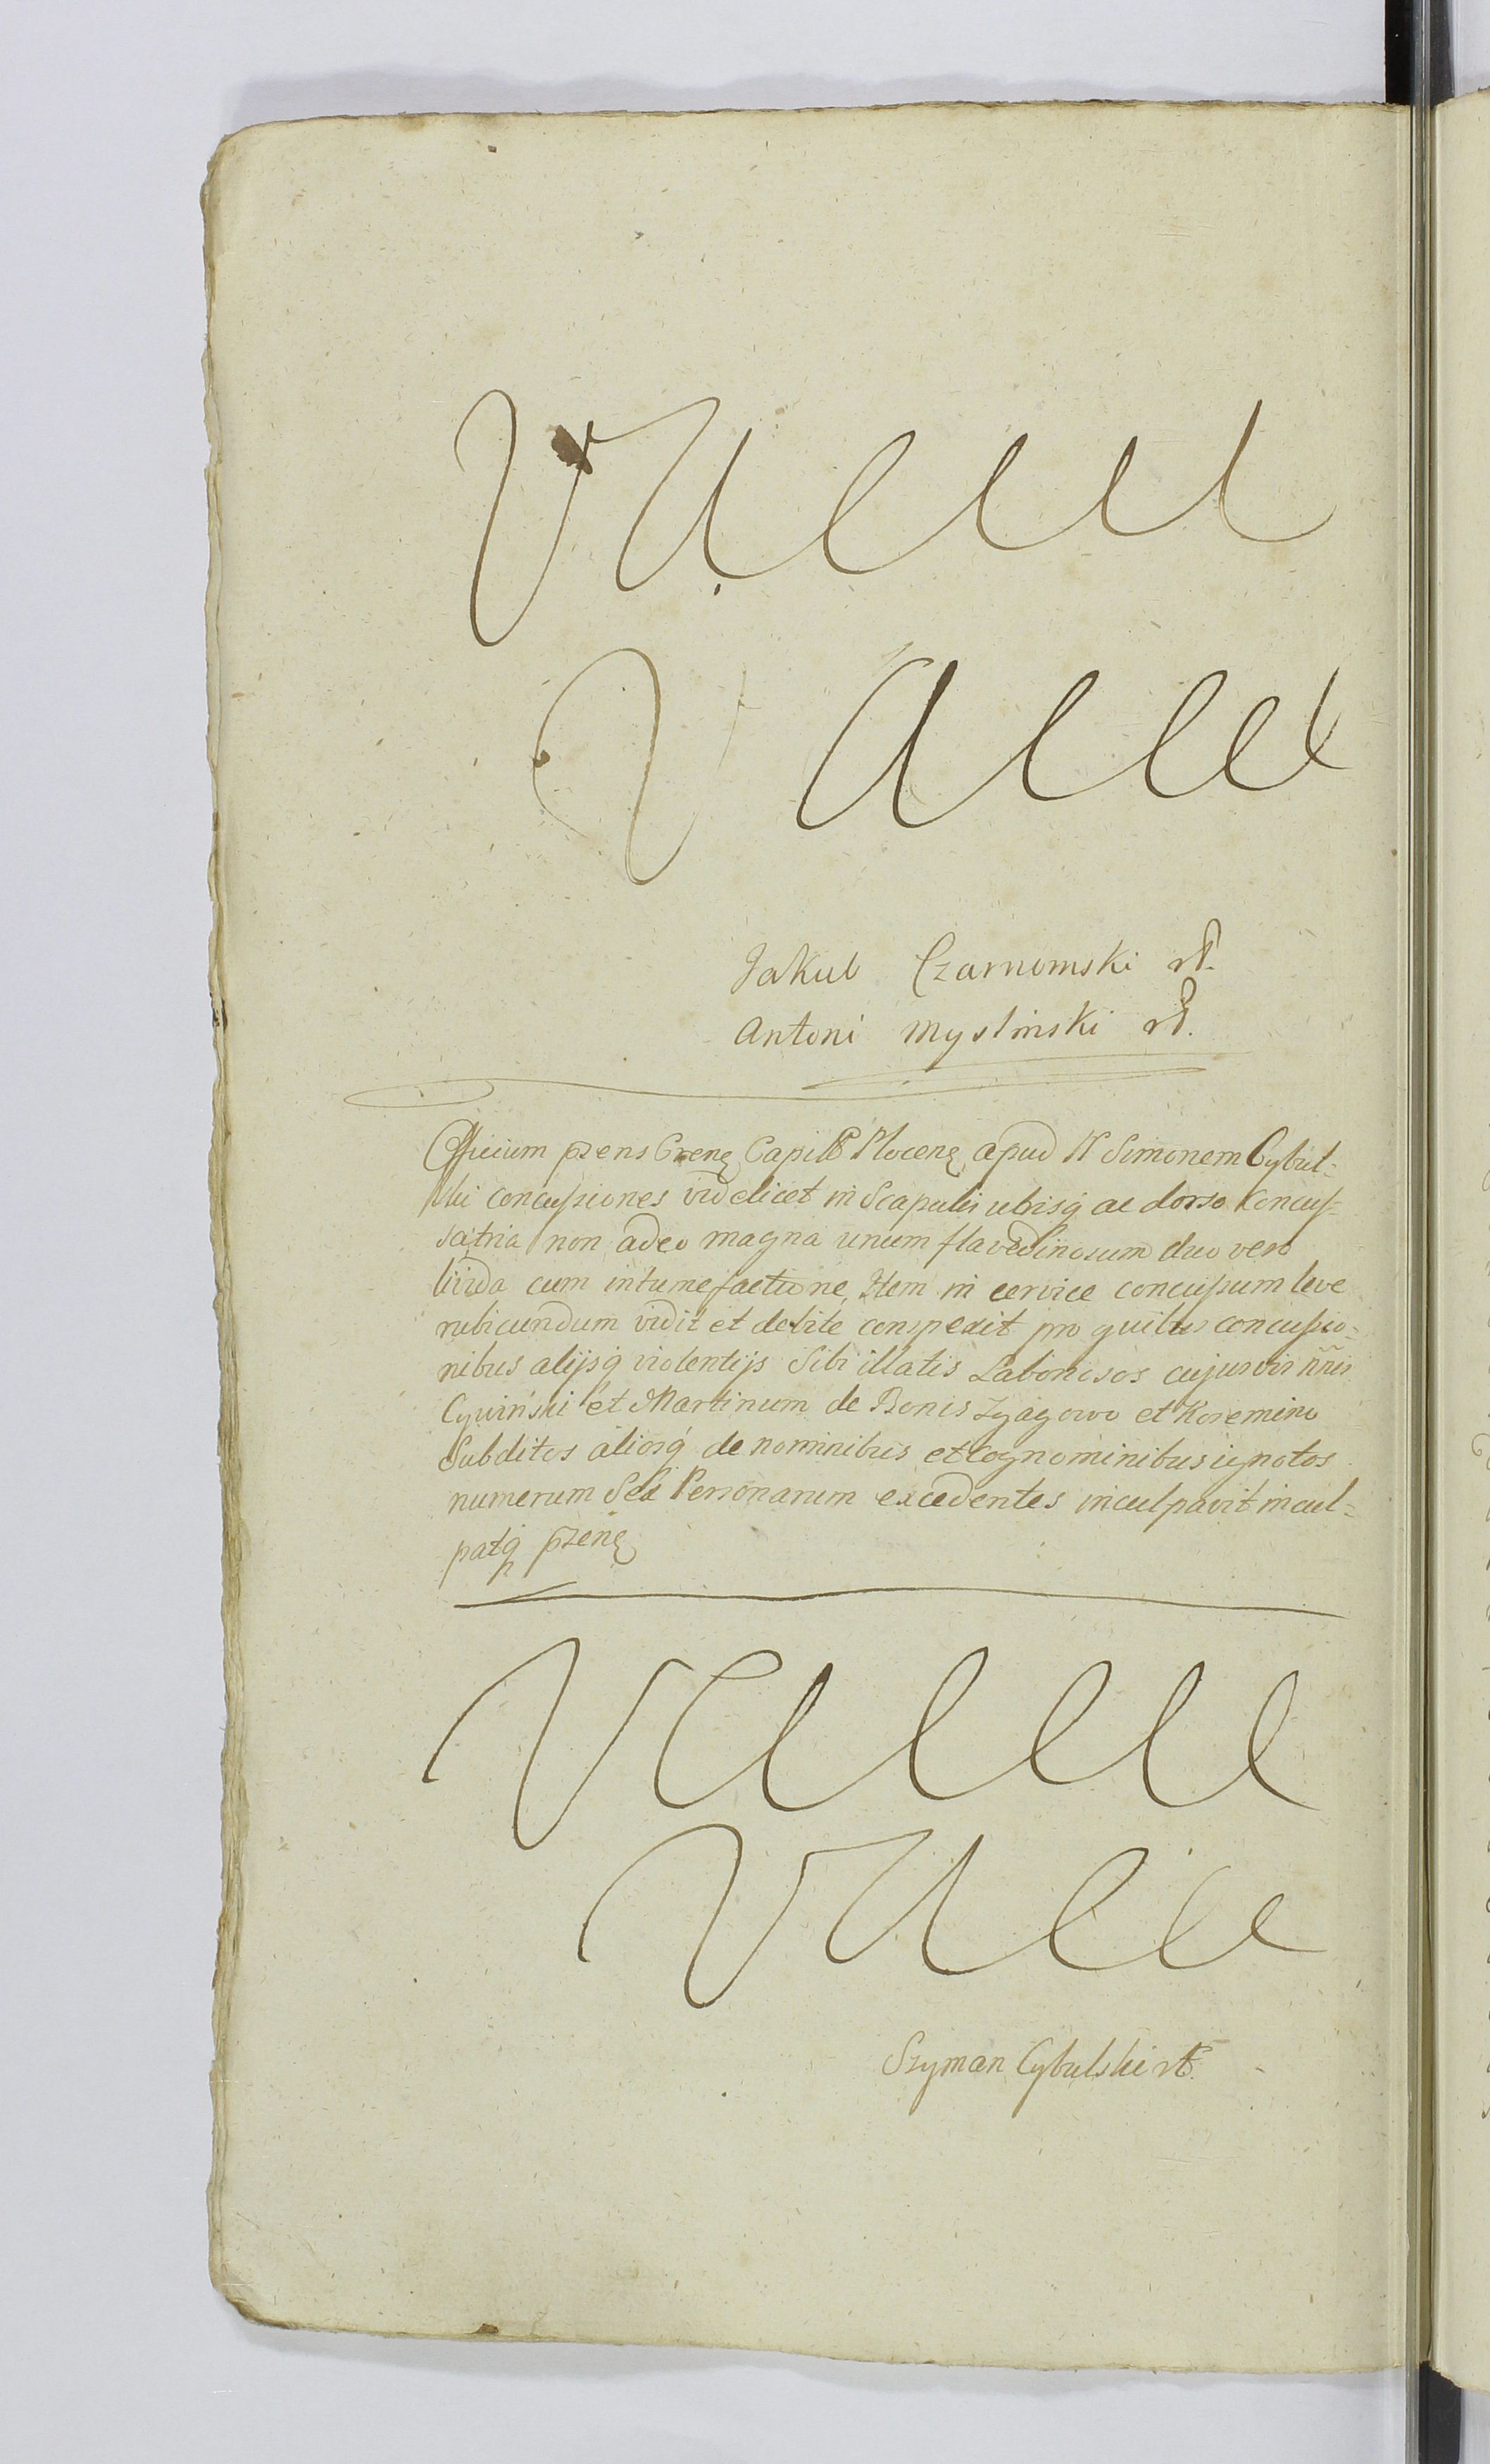 Vacat
Vacat
Jakub Czarnomski mp.
Antoni Myslinski mp.
Officium pzens Crene Capitle Plocene apud N Simonem Cybul=
ski concussiones videlicet in Scapulis utrisq ac dorso concus=
sa tria non adeo magna unum flavedinosum duo vero
livida cum intumefactione, Item in cervice concussum leve
rubicundum vidit et debite conspexit pro quibus concussio=
nibus alijsq violentijs Sibi illatis Laboriosos cujusvis nnis
Cywiński et Martinum de Bonis Zgagowo et Koremino
Subditos aliosq de nominibus et Cognominibus ignotos
numerum Sex Personarum excedentes inculpavit incul=
patq pzene
Vacat
Vacat
Szyman Cybulski mp.